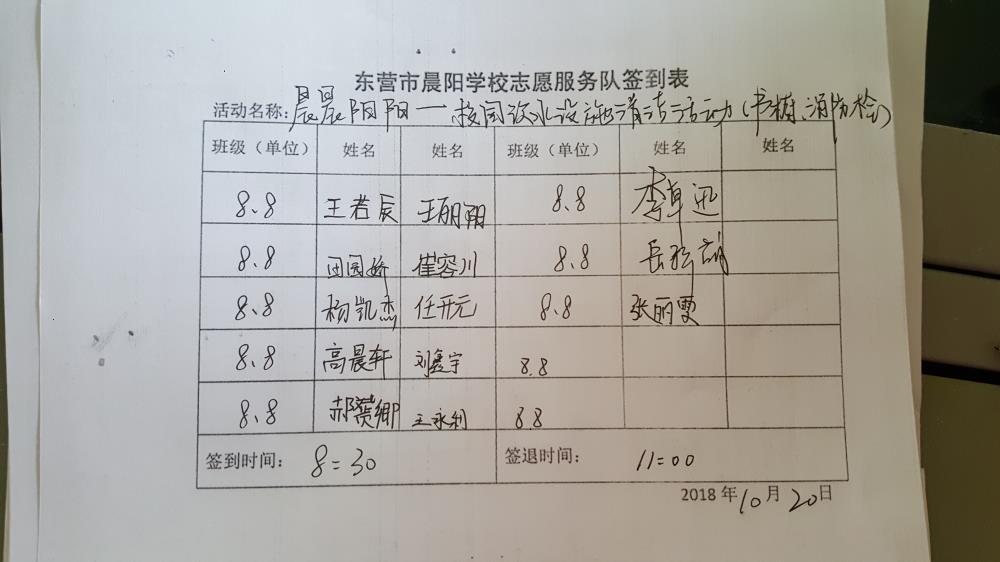 东营市晨阳学校志愿服务队签到表
活动名称：晨晨阳阳——校园饮水设施清洁活动（书橱、消防栓）
班级（单位） 姓名 姓名 班级（单位） 姓名 姓名
8、8 王若辰 王丽阳 8、8 李卓迅
8、8 田园娇 崔容川 8、8 岳
8、8 杨凯杰 任开元 8、8 张丽雯
8、8 高晨轩 刘鑫宇 8.8
8、8 郝赟卿 王永利 88
签到时间： 8=30 签退时间： 11=00
2018 年 10 月 20 日